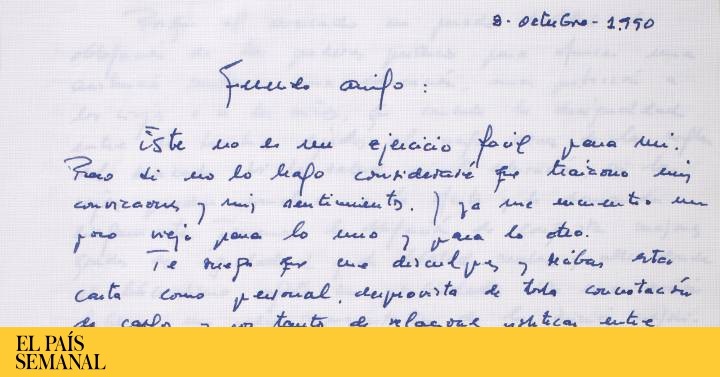 8-octubre-1.990
Querido amigo:
Este no es un ejercicio facil para mi.
Pero si no lo hago consideraré que traiciono mis
convicciones y mis sentimientos. Y ya me encuentro un
poco viejo para lo uno y para lo otro.
Te ruego que me disculpes y recibas esta
carta como personal, desprovista de toda connotación
de cargo y por tanto de relaciones políticas entre
EL PAÍS
SEMANAL